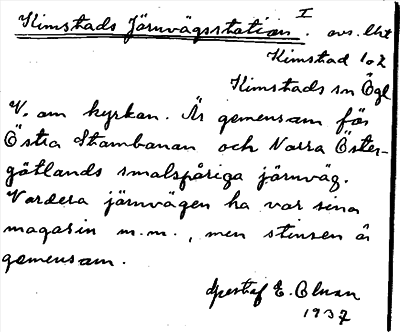 Kimstads Järnvägsstation. I avs. lht
Kimstad 1o2
Kimstads sn Ögl
V. om kyrkan. Är gemensam för
Östra Stambanan och Norra Öster-
götlands smalspåriga järnväg.
Vardera järnvägen ha var sina
magasin m.m., men stinsen är
gemensam.
Gustaf E. Olsson
1937